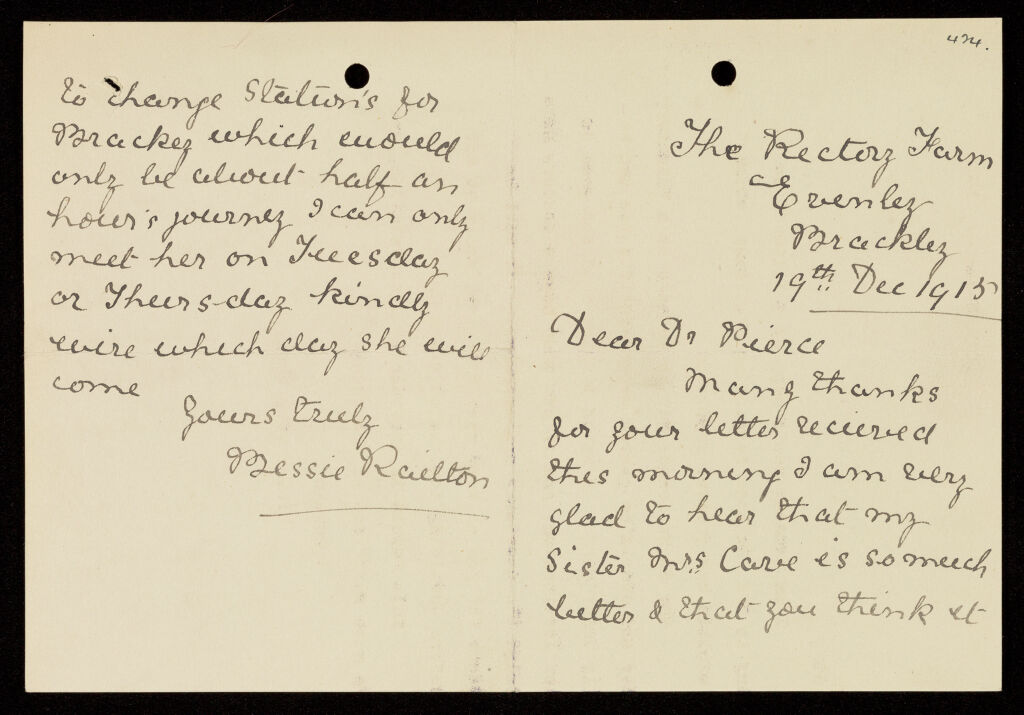 424.
The Rectory Farm
Evenley
Brackley
19th Dec 1915
Dear Dr Pierce
Many thanks
for your letter recieved
this morning I am very
glad to hear that my
Sister Mrs Cave is so much
better & that you think it
to change Station's for
Brackey which would
only be about half an
hour's journey I can only
meet her on Tuesday
or Thursday kindly
wire which day she will
come
Yours truly
Bessie Railton